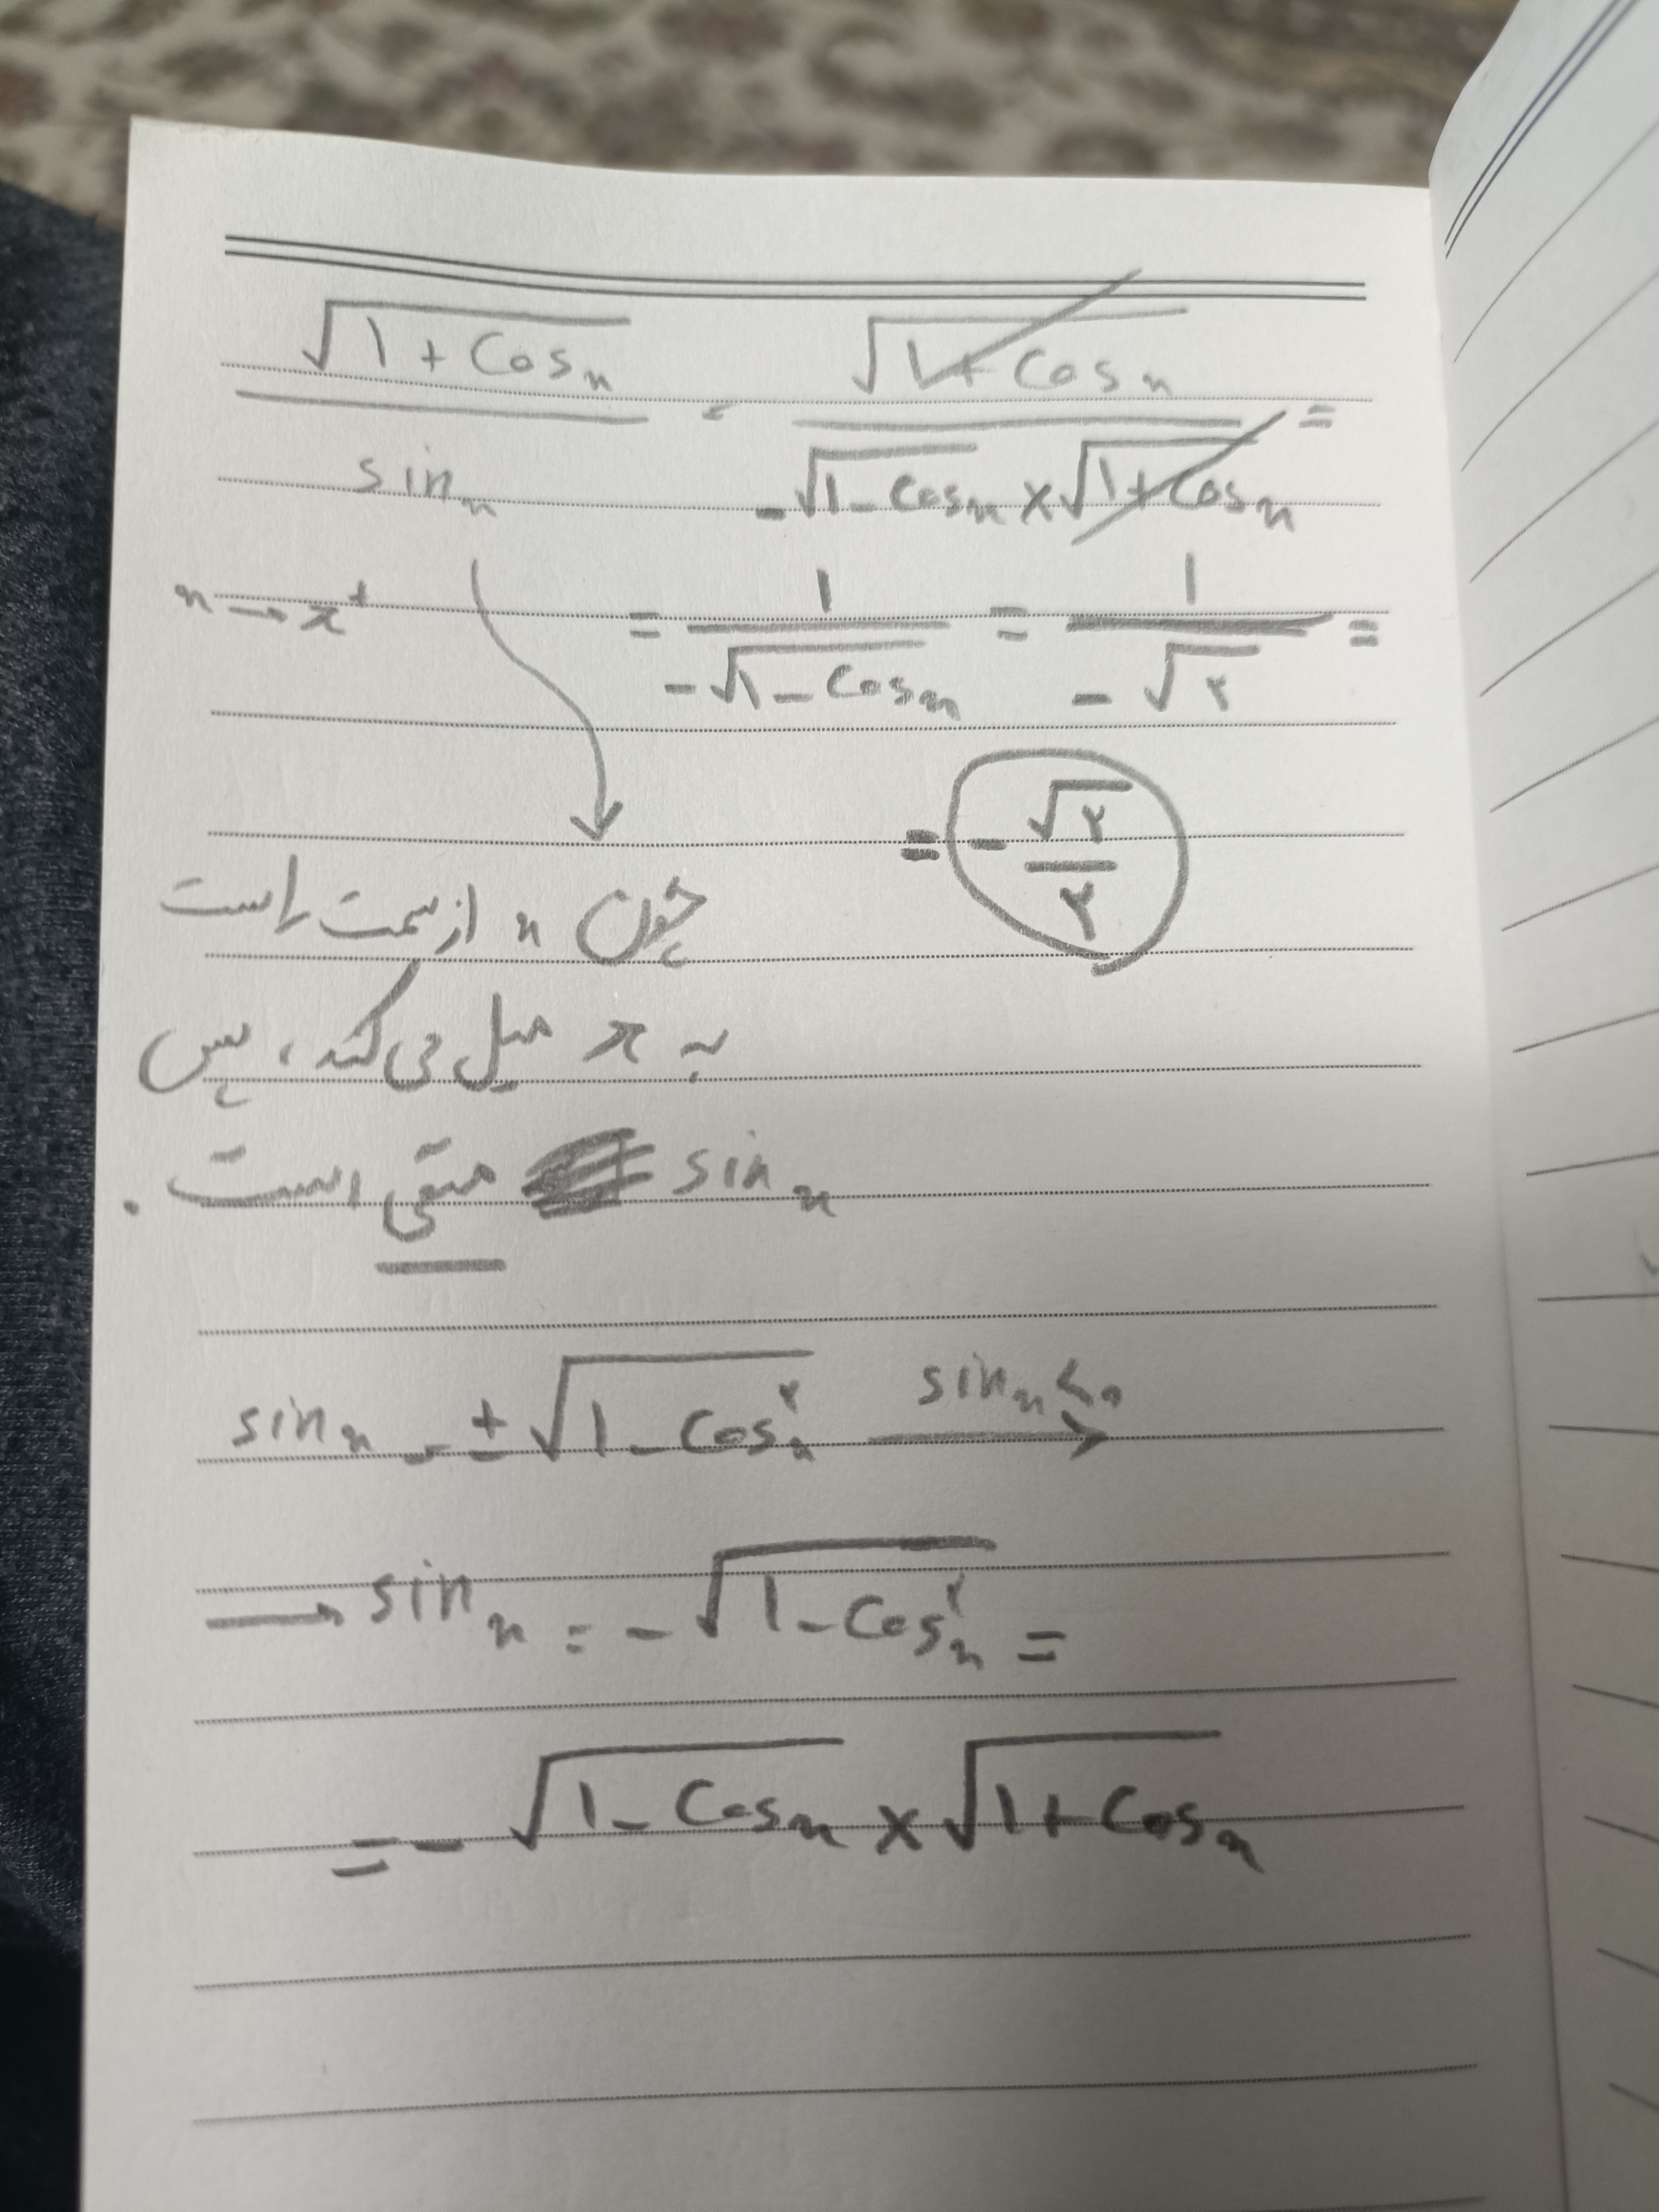 √(1 + Cos x) / sin x = √(1 + Cos x) / (-√(1 - Cos x) × √(1 + Cos x)) =
x → π⁺
= 1 / (-√(1 - Cos x)) = 1 / (-√۲) =
= -√۲ / ۲
چون x از سمت راست
به π میل می‌کند، پس
sin x منفی است.
sin x = ±√(1 - Cos²x) sin x < 0 →
→ sin x = -√(1 - Cos²x) =
= -√(1 - Cos x) × √(1 + Cos x)